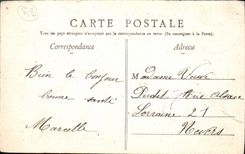 CARTE POSTALE
Tous les pays étrangers n'acceptent pas la correspondance au recto. (Se renseigner à la Poste).
Correspondance
Adresse
Bien le bonjour
bonne santé
Marcelle
Madame Veuve
Rue Alsace
Lorraine 21
Nevers